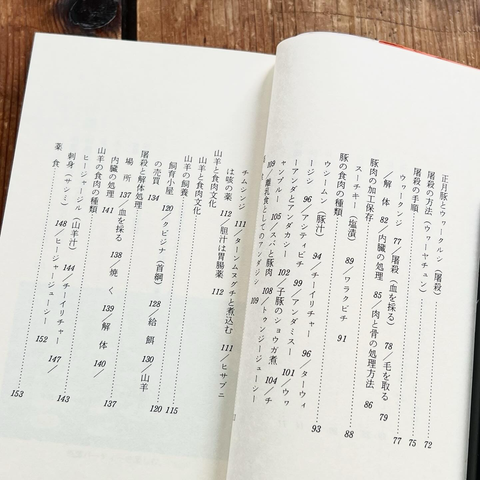 正月豚とウヮークルシ（屠殺）……72
屠殺の方法（ウヮーヤチュン）……75
屠殺の手順……77
ウヮータンジ 77／屠殺（血を採る） 78／毛を取る 79
／解体 82／内臓の処理 85／肉と骨の処理方法 86
豚肉の加工保存……88
スーチキー（塩漬） 89／ワラクビチ 91
豚の食肉の種類……93
ウシームン（豚汁） 94／チーイリチャー 96／ターウィ
ージシ 96／アシティビチ 99／アンダミスー 101／ウヮ
ーアンダとアンダカシー 102／子豚のショウガ煮 104／チ
ャンプルー 105／スバと豚肉 108／トゥンジージューシー
109／離乳食としてのアンダジシ 109
チムシンジ 111／ターンムスグチと煮込む 111／ヒサブニ
は咳の薬 112／胆汁は胃腸薬 112
山羊と食肉文化……115
山羊の飼養……120
飼育小屋 120／クビジナ（首綱） 128／給餌 130／山羊
の売買 134
屠殺と解体処理……137
場所 137／血を採る 138／焼く 139／解体 140／
内臓の処理 141
山羊の食肉の種類……143
ヒージャージル（山羊汁） 144／チーイリチャー 147／
刺身（サシミ） 148／ヒージャージューシー 152
薬食……153